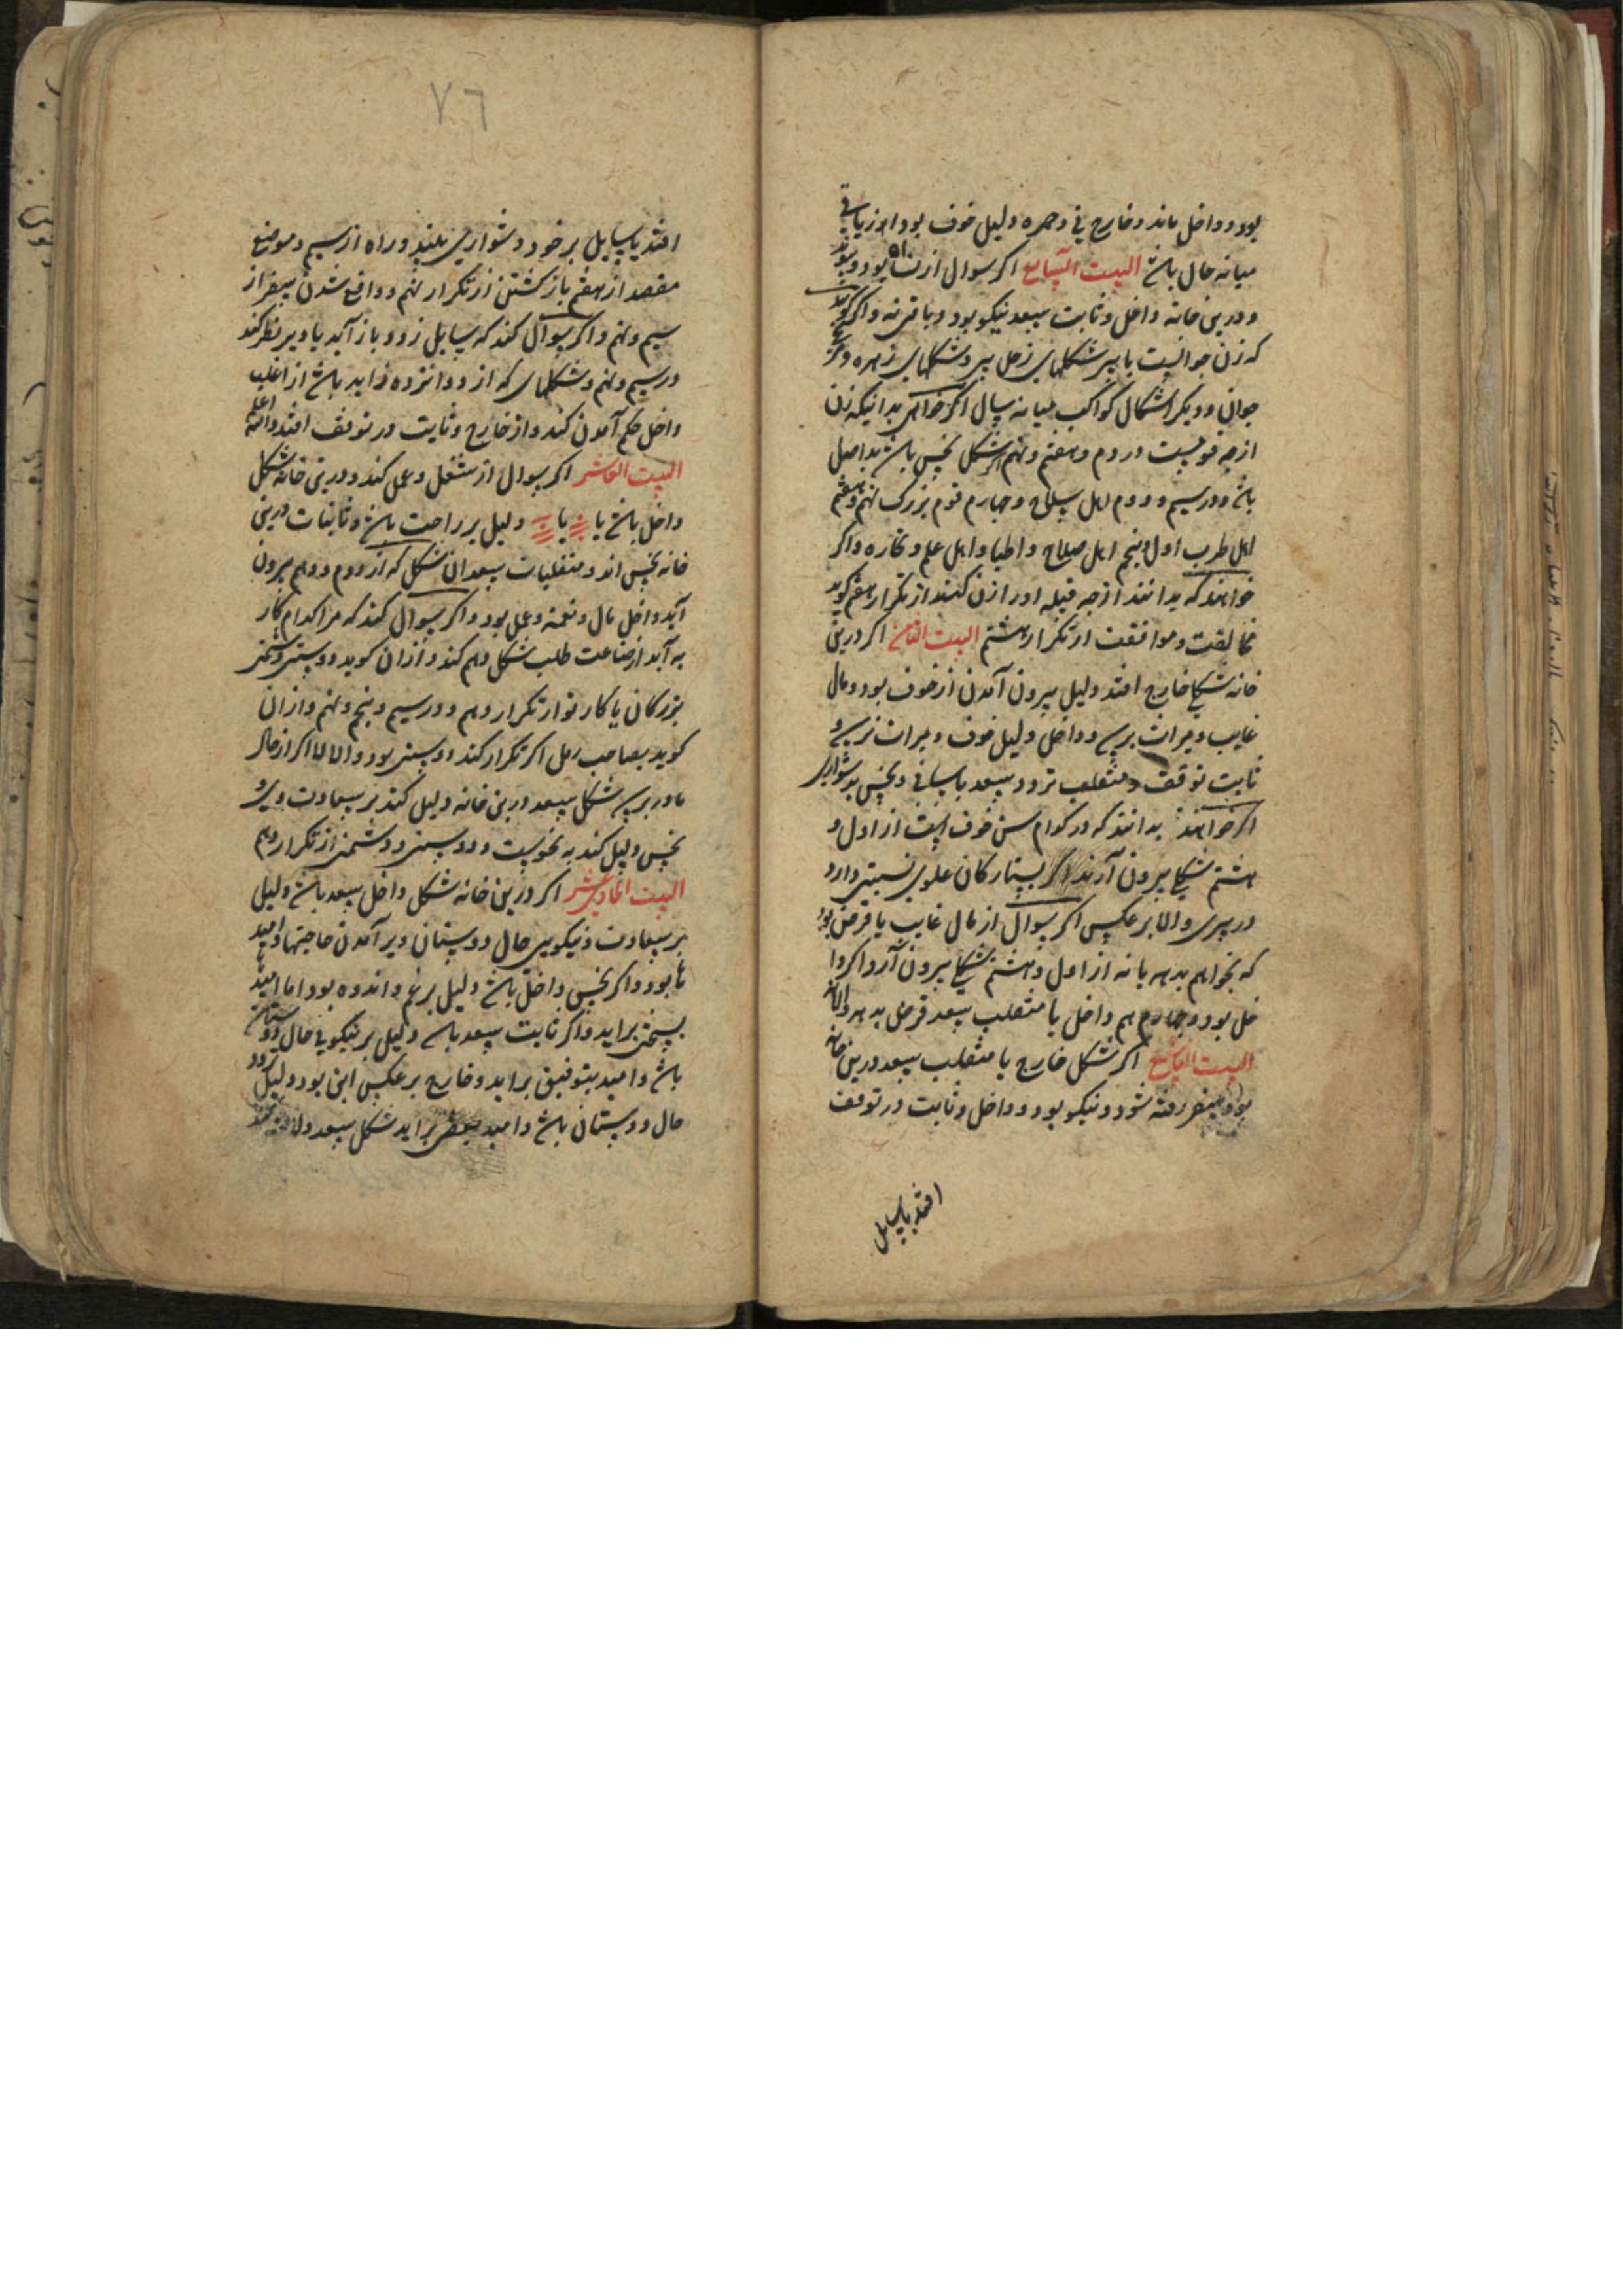 بود و داخل ماند و خارج فی و حمره دلیل خوف بود اما زیانی
میانه حال باشد البیت السابع اکر سوال از نساء بود و پیوند
و درین خانه داخل و ثابت سعد نیکو بود و باقی نه و اکر کویند
که زن جوانست یا پیر شکلهای زحل پیر و شکلهای زهره و مریخ
جوان و دیکر اشکال کواکب میانه سال اکر خواهی بدانی که زن
از چه قومست در دوم و هفتم و نهم اکر شکل نحس باشد بد اصل
باشد و در سیم و دوم اهل سلاح و چهارم قوم بزرک نهم و هفتم
اهل طرب اول و پنجم اهل صلاح و اطبا و اهل علم و تجاره و اکر
خواهند که بدانند از چه قبیله اورا زن کنند از تکرار هفتم کوید
مخالفت و موافقت از تکرار هشتم البیت الثامن اکر درین
خانه شکلی خارج افتد دلیل بیرون آمدن از خوف بود و مال
غایب و میراث برسد و داخل دلیل خوف و میراث نرسد و
ثابت توقف و منقلب تردد سعد بآسانی و نحس بدشواری
اکر خواهند بدانند که در کدام سن خوف است از اول و
هشتم شکلی بیرون آرند اکر بستارکان علوی نسبتی دارد
در پیری و الا برعکس اکر سوال از مال غایب یا قرض بود
که بخواهم بدهد یا نه از اول و هشتم شکلی بیرون آرد اکر دا
خل بود و چهارم هم داخل یا منقلب سعد قرض بدهد و الا نه
البیت التاسع اکر شکل خارج یا منقلب سعد درین خانه
بود سفر رفته شود و نیکو بود و داخل و ثابت در توقف
افتد یا سایل
۷٦
افتد یا سایل بر خود دشواری بیند و راه از سیم و موضع
مقصد از هفتم باز کشتن از تکرار نهم و واقع شدن سفر از
سیم و نهم و اکر سوال کند که سایل زود باز آید یا دیر نظر کند
در سیم و نهم و شکلهای که از دوانزده زاید باشد از اغلب
داخل حکم آمدن کند و از خارج و ثابت در توقف افتد والله اعلم
البیت العاشر اکر سوال از شغل و عمل کند و درین خانه شکل
داخل باشد یا یا دلیل بر راحت باشد و ثابتات درین
خانه نحس اند و منقلبات سعد آن شکل که از دوم و دهم بیرون
آید داخل مال و نعمة و عمل بود و اکر سوال کند که مرا کدام کار
به آید از صناعت طلب شکل دهم کند و از آن کوید دوستی و دشمنی
بزرکان یا کار تو از تکرار دهم و در سیم و پنجم و نهم و از ان
کوید بصاحب رمل اکر تکرار کند دوستی بود و الا لا اکر از حال
مادر پرسد شکل سعد درین خانه دلیل کند بر سعادت وی و
نحس دلیل کند به نحوست و دوستی و دشمنی از تکرار دهم
البیت الحادی عشر اکر درین خانه شکل داخل سعد باشد دلیل
بر سعادت و نیکویی حال دوستان و بر آمدن حاجتها و امید
ها بود و اکر نحس داخل باشد دلیل بر غم و اندوه بود اما امید
بسختی براید و اکر ثابت سعد باشد دلیل بر نیکویی حال دوستان
باشد و امید بتوفیق براید و خارج برعکس این بود دلیل
حال دوستان باشد و امید ببعضی براید شکل سعد